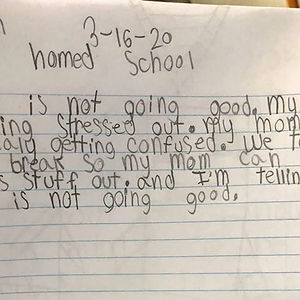 3-16-20
homed school
is not going good. my
ing stressed out. my mom
aly getting confused. we
break so my mom can
s stuff out. and I'm tellin
is not going good.